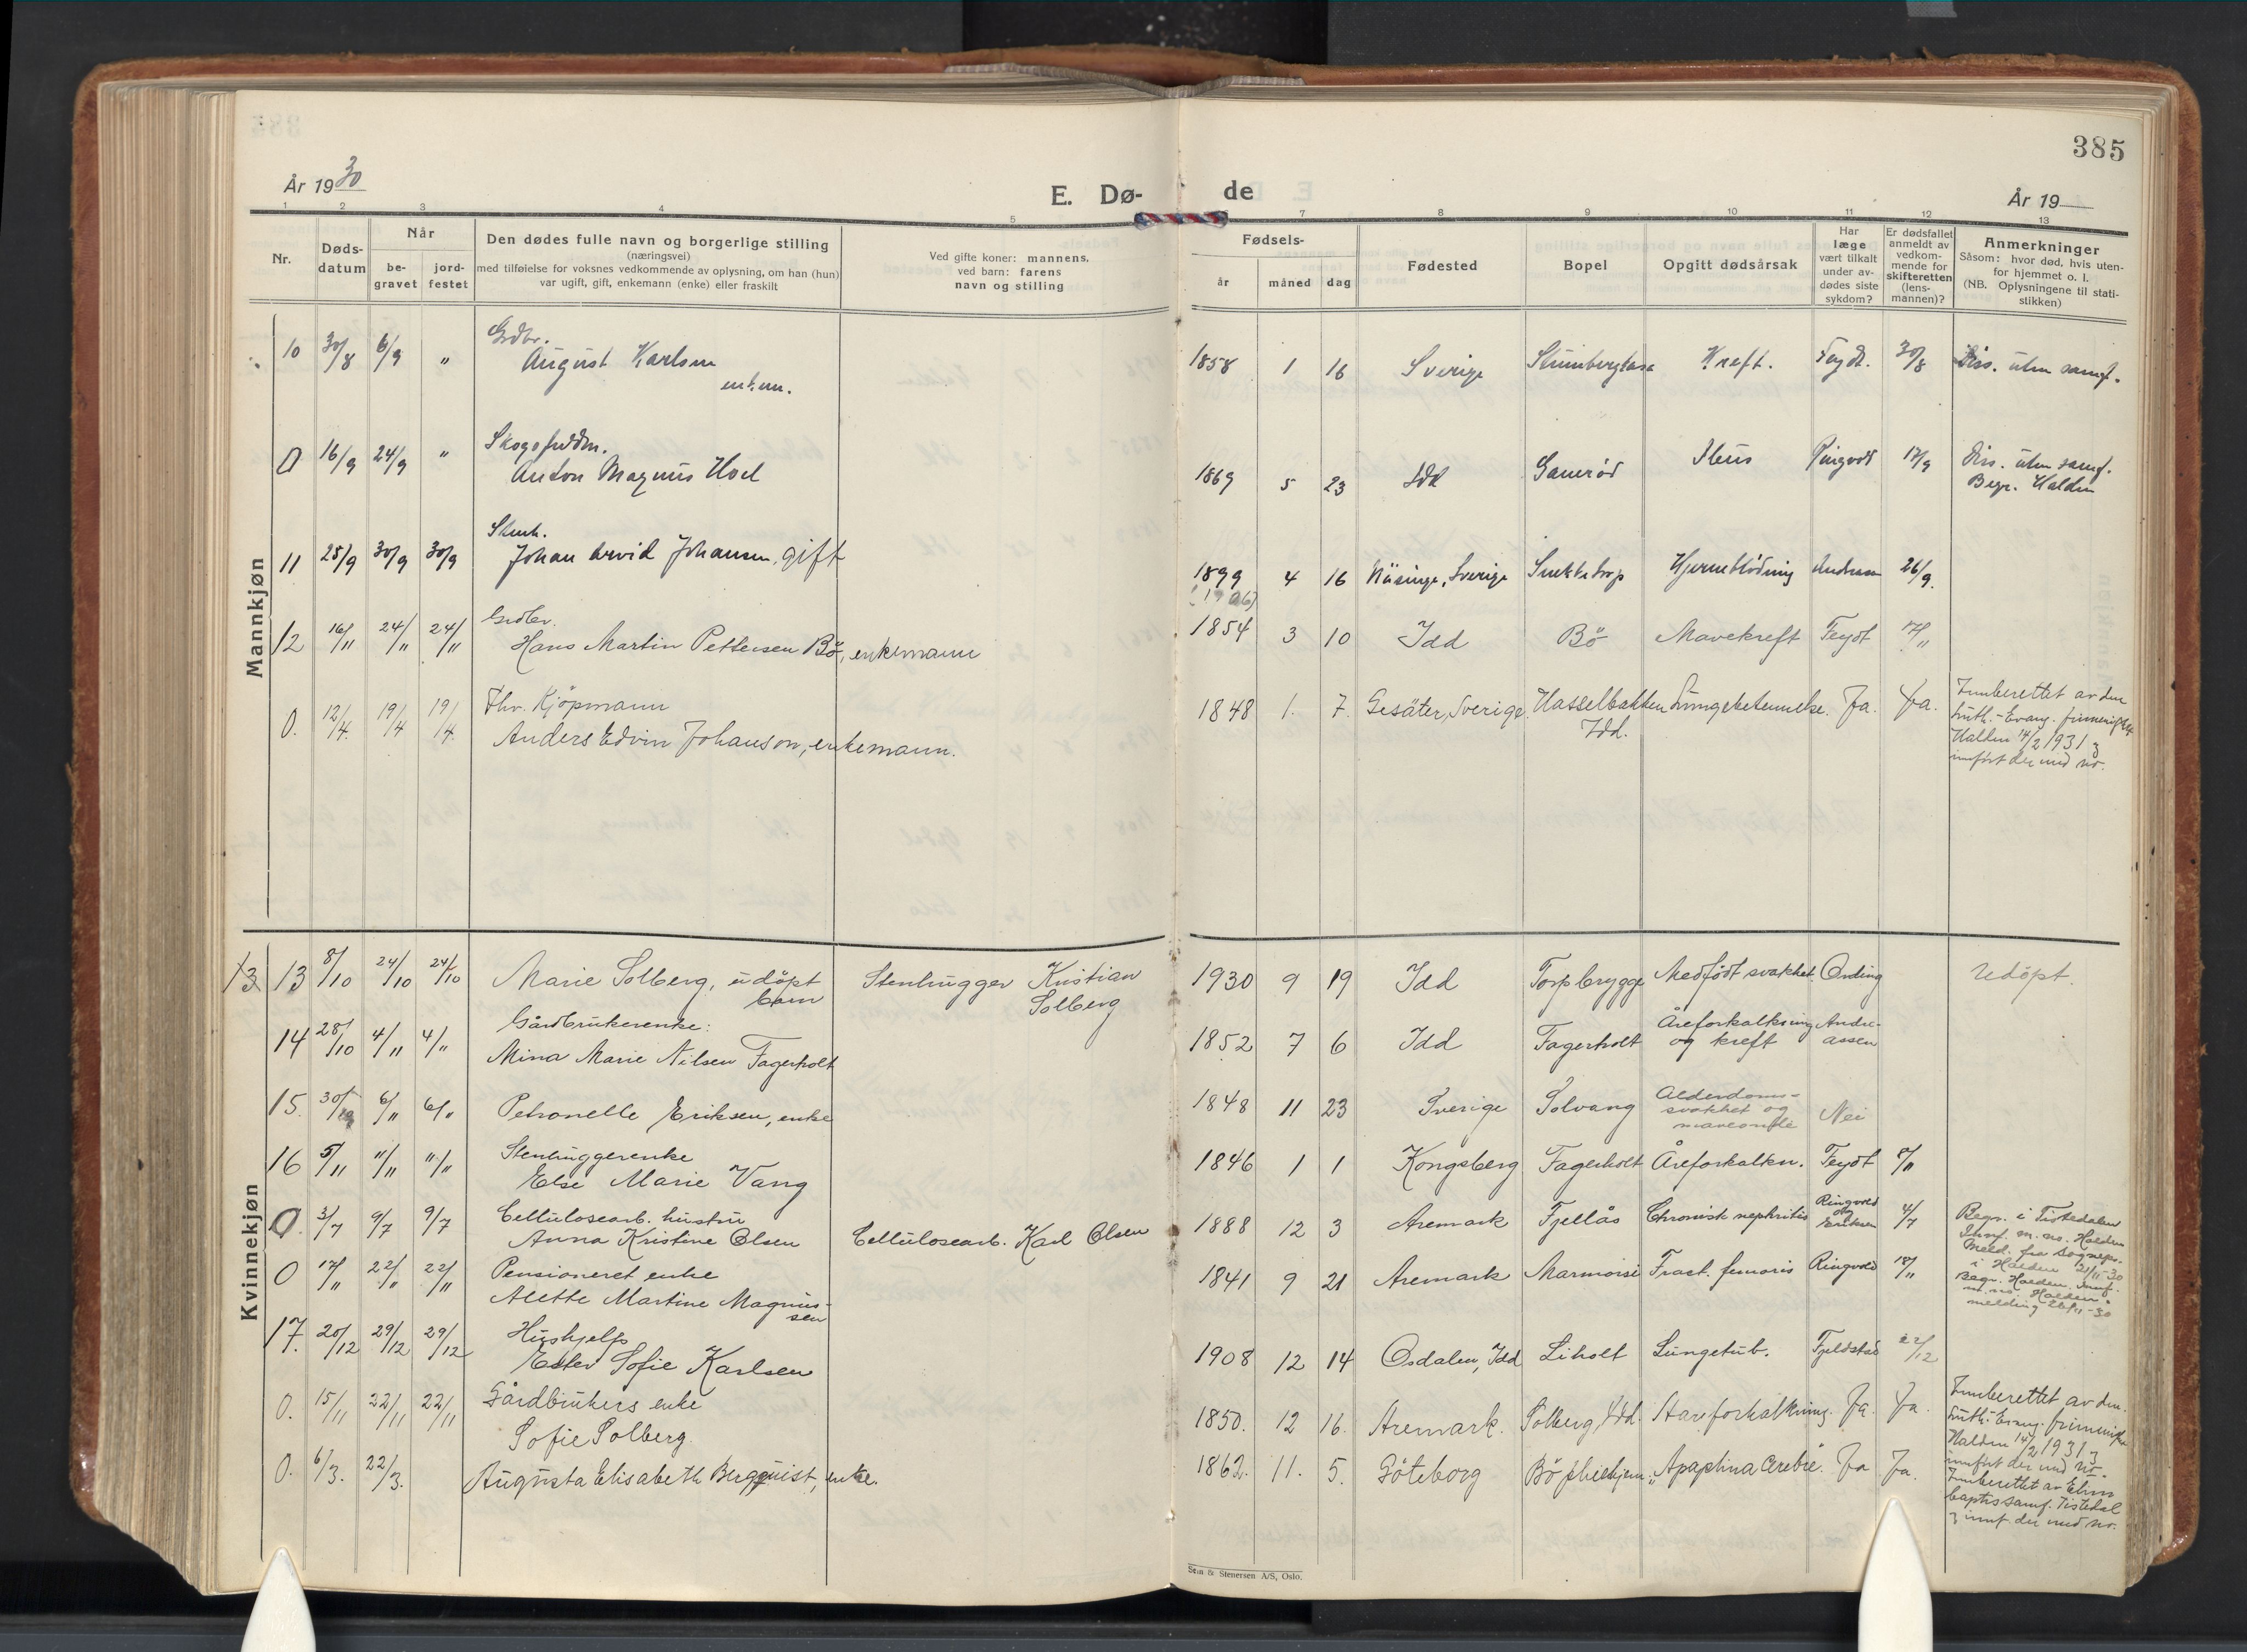 385
År 19 30
E. Dø-
de
År 19
1 2 3 4 5 6 7 8 9 10 11 12 13
Nr.
Døds-
datum
Når
be-
gravet
jord-
festet
Den dødes fulle navn og borgerlige stilling
(næringsvei)
med tilføielse for voksnes vedkommende av oplysning, om han (hun)
var ugift, gift, enkemann (enke) eller fraskilt
Ved gifte koner: mannens,
ved barn: farens
navn og stilling
Fødsels-
år måned dag
Fødested
Bopel
Opgitt dødsårsak
Har
læge
vært tilkalt
under av-
dødes siste
sykdom?
Er dødsfallet
anmeldt av
vedkom-
mende for
skifteretten
(lens-
mannen)?
Anmerkninger
Såsom: hvor død, hvis uten-
for hjemmet o. l.
(NB. Oplysningene til stati-
stikken)
Mannkjøn
Grdbr.
10 30/8 6/9 " August Karlsen 1858 1 16 Sverige Kreft. Feydt. 30/8 Diss. uten samf.
enkem.
0 16/9 24/9 " Anton Magnus Hoel 1869 5 23 Idd Ileus Ringvold 17/9 Diss. uten samf.
Begr. Halden
Stenh.
11 25/9 30/9 30/9 Johan Arvid Johansen, gift 1899 4 16 Näsinge, Sverige Hjerneblödning 26/9.
Grdbr.
12 16/11 24/11 24/11 Hans Martin Pettersen Bö, enkemann 1854 3 10 Idd Bö Mavekreft Feydt 17/11
Fhv. Kjöpmann
0. 12/4. 19/4 19/4. Anders Edvin Johanson, enkemann. 1848 1. 7. Gesäter, Sverige. Hasselbakken Idd. Lungebetennelse. Ja. Ja.
Innberettet av den
Luth.-Evang. frimenighet
Halden 14/2 1931 &
innført der med no.
Kvinnekjøn
13 13 8/10 24/10 24/10 Marie Solberg, udöpt barn Stenhugger Kristian Solberg 1930 9 19 Idd Torpbrygge Medfödt svakhet. Ording Udöpt.
Gårdbrukerenke:
14 28/10 4/11 4/11 Mina Marie Nilsen Fagerholt 1852 7 6 Idd Fagerholt Åreforkalkning og kreft Andreassen
15. 30/10 6/11 6/11 Petronelle Eriksen, enke 1848 11 23 Sverige Solvang Alderdoms-
svakhet og
maveonde Nei
Stenhuggerenke
16 5/11 11/11 11/11 Else Marie Vang 1846 1 1 Kongsberg Fagerholt Åreforkalkn. Feydt 8/11
Cellulosearb. hustru
0. 3/7 9/7 9/7 Anna Kristine Olsen Cellulosearb. Karl Olsen 1888 12 3 Aremark Fjellås Chronisk nephritis Ringvold og Eriksen 4/7
Begr. i Tistedalen
Innf. m. no. Halden
Meld. fra sognepr.
i Halden 21/11-30
Pensioneret enke
0 17/11 22/11 22/11 Alette Martine Magnus-
sen 1841 9 21 Aremark Fract. femoris Ringvold 18/11
Begr. Halden. Innf.
m. no. Halden.
Hushjelp
17. 20/12 29/12 29/12 Ester Sofie Karlsen 1908 12 14 Osdalen, Idd Liholt Lungetub. Fjeldstad 22/12
Gårdbrukers enke
0. 15/11 22/11 22/11 Sofie Solberg. 1850. 12 16. Aremark. Solberg, Idd. Ja. Ja.
Innberettet av den
Luth.-Evang. frimenighet
Halden 14/2 1931 &
innført der med no.
0. 6/3. 22/3. Augusta Elisabeth Bergquist, enke. 1862. 11. 5. Göteborg Bö pleiehjem Ja Ja.
Innberettet av Elim
baptistsamf. Tistedal
& innf. der med no.
Sem & Stenersen A/S, Oslo.